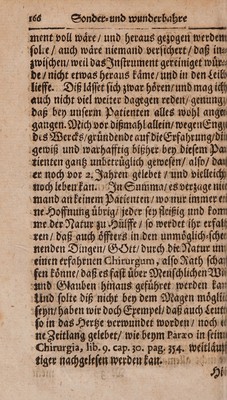 166 Sonder-und wunderbahre
ment voll wäre/ und heraus gezogen werdem
solte/ auch wäre niemand versichert/ daß in-
zwischen/ weil das Instrument gereiniget wür-
de/ nicht etwas heraus käme/ und in den Leib
lieffe. Diß lässet sich zwar hören/ und mag ich
auch nicht viel weiter dagegen reden/ genung/
daß bey unserm Patienten alles wohl ange-
gangen. Mich vor dißmahl allein/ wegen Enge
des Wercks/ gründend auf die Erfahrung/ die
gewiß und warhafftig bißher bey diesem Pa-
tienten gantz unbetrüglich gewesen/ also/ daß
er noch vor 2. Jahren gelebet/ und vielleicht
noch leben kan. In Summa/ es verzage nie-
mand an keinem Patienten/ wo nur immer ei-
ne Hoffnung übrig/ jeder sey fleißig und kom-
me der Natur zu Hülffe/ so werdet ihr erfah-
ren/ daß auch öffters in den unmöglich-schei-
nenden Dingen/ GOtt/ durch die Natur und
einen erfahrenen Chirurgum, also Rath schaf-
fen könne/ daß es fast über Menschlichen Witz
und Glauben hinaus geführet werden kan.
Und solte diß nicht bey dem Magen möglich
seyn/ haben wir doch Exempel/ daß auch Leute/
so in das Hertze verwundet worden/ noch ei-
ne Zeitlang gelebet/ wie beym Paræo in seiner
Chirurgia, lib. 9. cap. 30. pag. 354. weitläuf-
tiger nachgelesen werden kan.